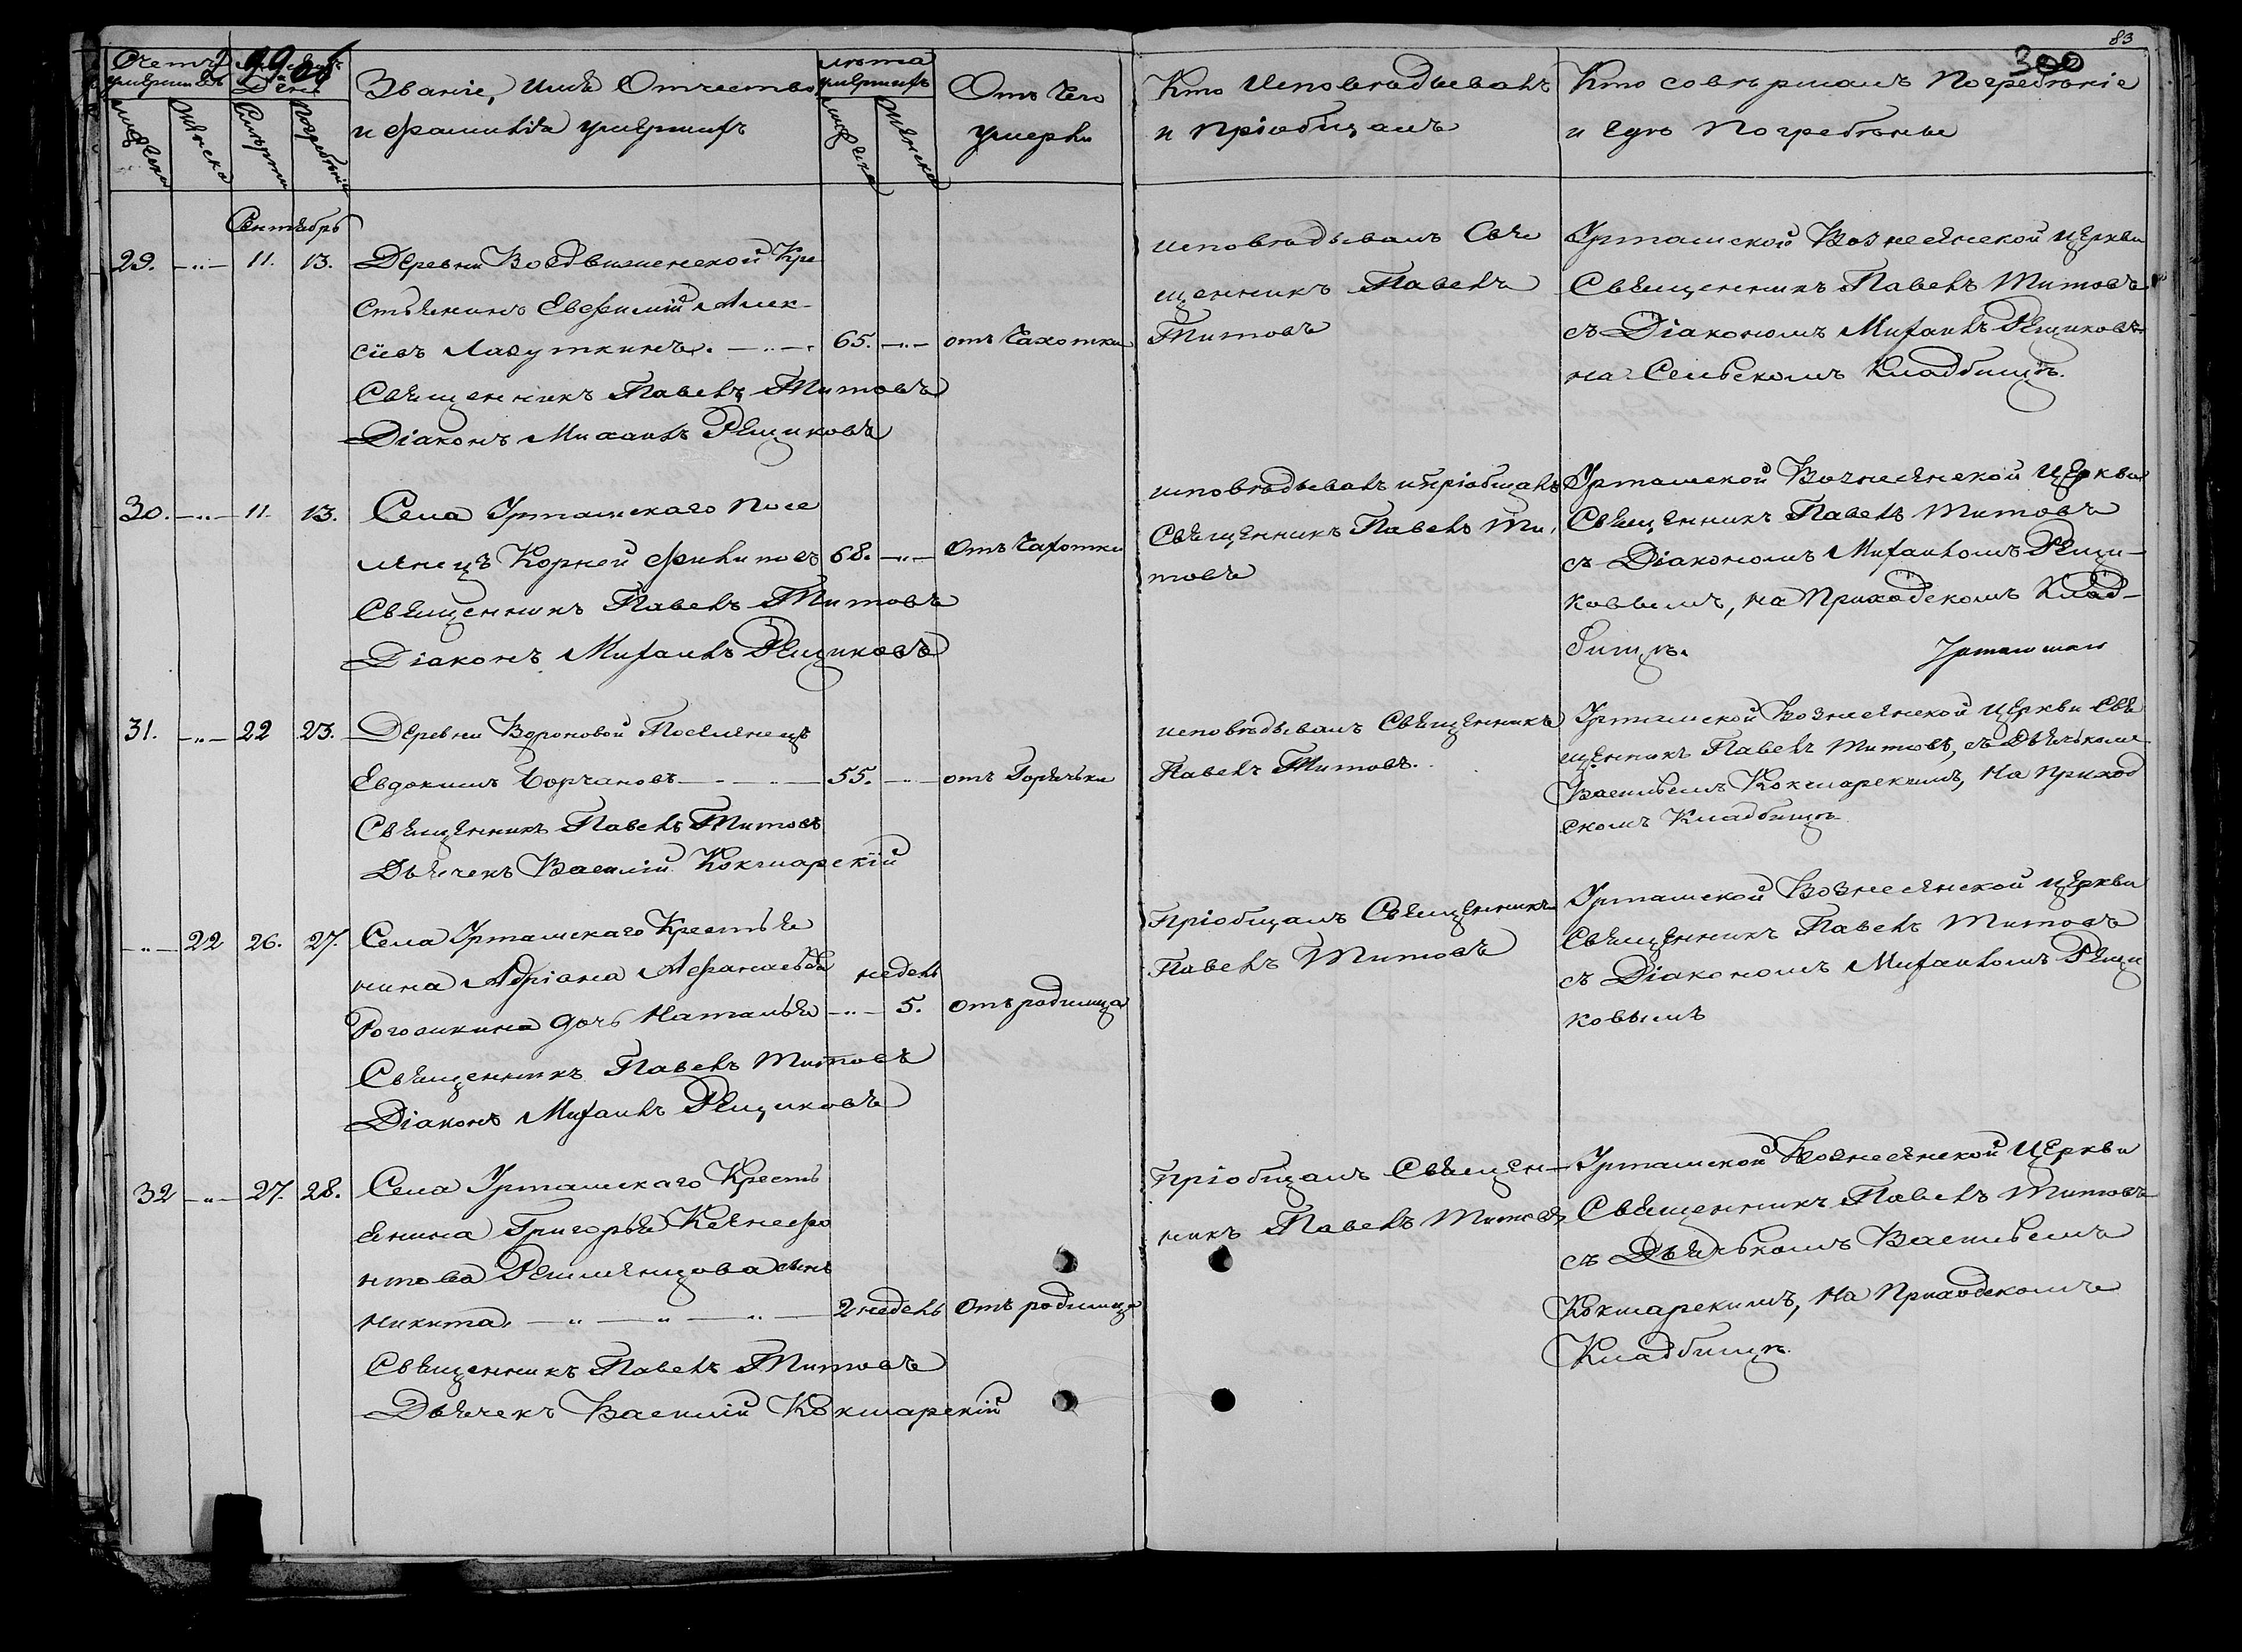 83
300
Счетъ умершихъ
Мѣсяцъ и День
Званіе, имя Отчество
и фамилія умершихъ
лѣта умершихъ
Отъ чего
умерли
Кто исповѣдывалъ
и пріобщалъ
Кто совѣршалъ погребѣніе
и гдѣ погребѣны
мужеска
женска
Смѣрти
погребѣнія
мужеска
женска
Сентябрь
29. 11. 13.
Деревни Воздвиженской Кре
стьянинъ Евфимій Алек-
сіевъ Лазуткинъ. 65. отъ Чахотки
Священникъ Павелъ Титовъ
Діаконъ Михаилъ Рѣщиковъ
исповѣдывалъ Свя
щенникъ Павелъ
Титовъ
Урташской Вознесенской церкви
Священникъ Павелъ Титовъ
съ Діакономъ Михаилъ Рѣщиковъ
на Сельскомъ Кладбищѣ.
30. 11. 13.
Села Урташскаго Посе
ленецъ Корней Филиповъ 68. Отъ Чахотки
Священникъ Павелъ Титовъ
Діаконъ Михаилъ Рѣщиковъ
исповѣдывалъ и пріобщалъ
Священникъ Павелъ Ти
товъ
Урташской Вознесенской церкви
Священникъ Павелъ Титовъ
съ Діакономъ Михаиломъ Рѣщи-
ковымъ, на Приходскомъ Клад-
бищѣ.
31. 22 23.
Деревни Вороновой Поселенецъ
Евдокимъ Борчановъ 55. отъ Горячьки
Священникъ Павелъ Титовъ
Дьячекъ Василій Кокшарскій
исповѣдывалъ Священникъ
Павелъ Титовъ.
Урташской Вознесенской церкви Свя
щенникъ Павелъ Титовъ, съ Дьячькомъ
Васильемъ Кокшарскимъ, на приход
скомъ Кладбищѣ
22 26. 27.
Села Урташскаго Крестья
нина Адріана Афанасьева недель
Рогошкина дочь Наталья 5. Отъ родимца
Священникъ Павелъ Титовъ
Діаконъ Михаилъ Рѣщиковъ
Пріобщалъ Священникъ
Павелъ Титовъ
Урташской Вознесенской церкви
Священникъ Павелъ Титовъ
съ Діакономъ Михаиломъ Рѣщи
ковымъ
32 27. 28.
Села Урташскаго Кресть
янина Григорья Ксенофо
нтова сынъ
Никита. 2 недель Отъ родимца
Священникъ Павелъ Титовъ
Дьячекъ Василій Кокшарскій
Пріобщалъ Священ-
никъ Павелъ Титовъ
Урташской Вознесенской Церкви
Священникъ Павелъ Титовъ
съ Дьячькомъ Васильемъ
Кокшарскимъ, на Приходскомъ
Кладбищѣ.